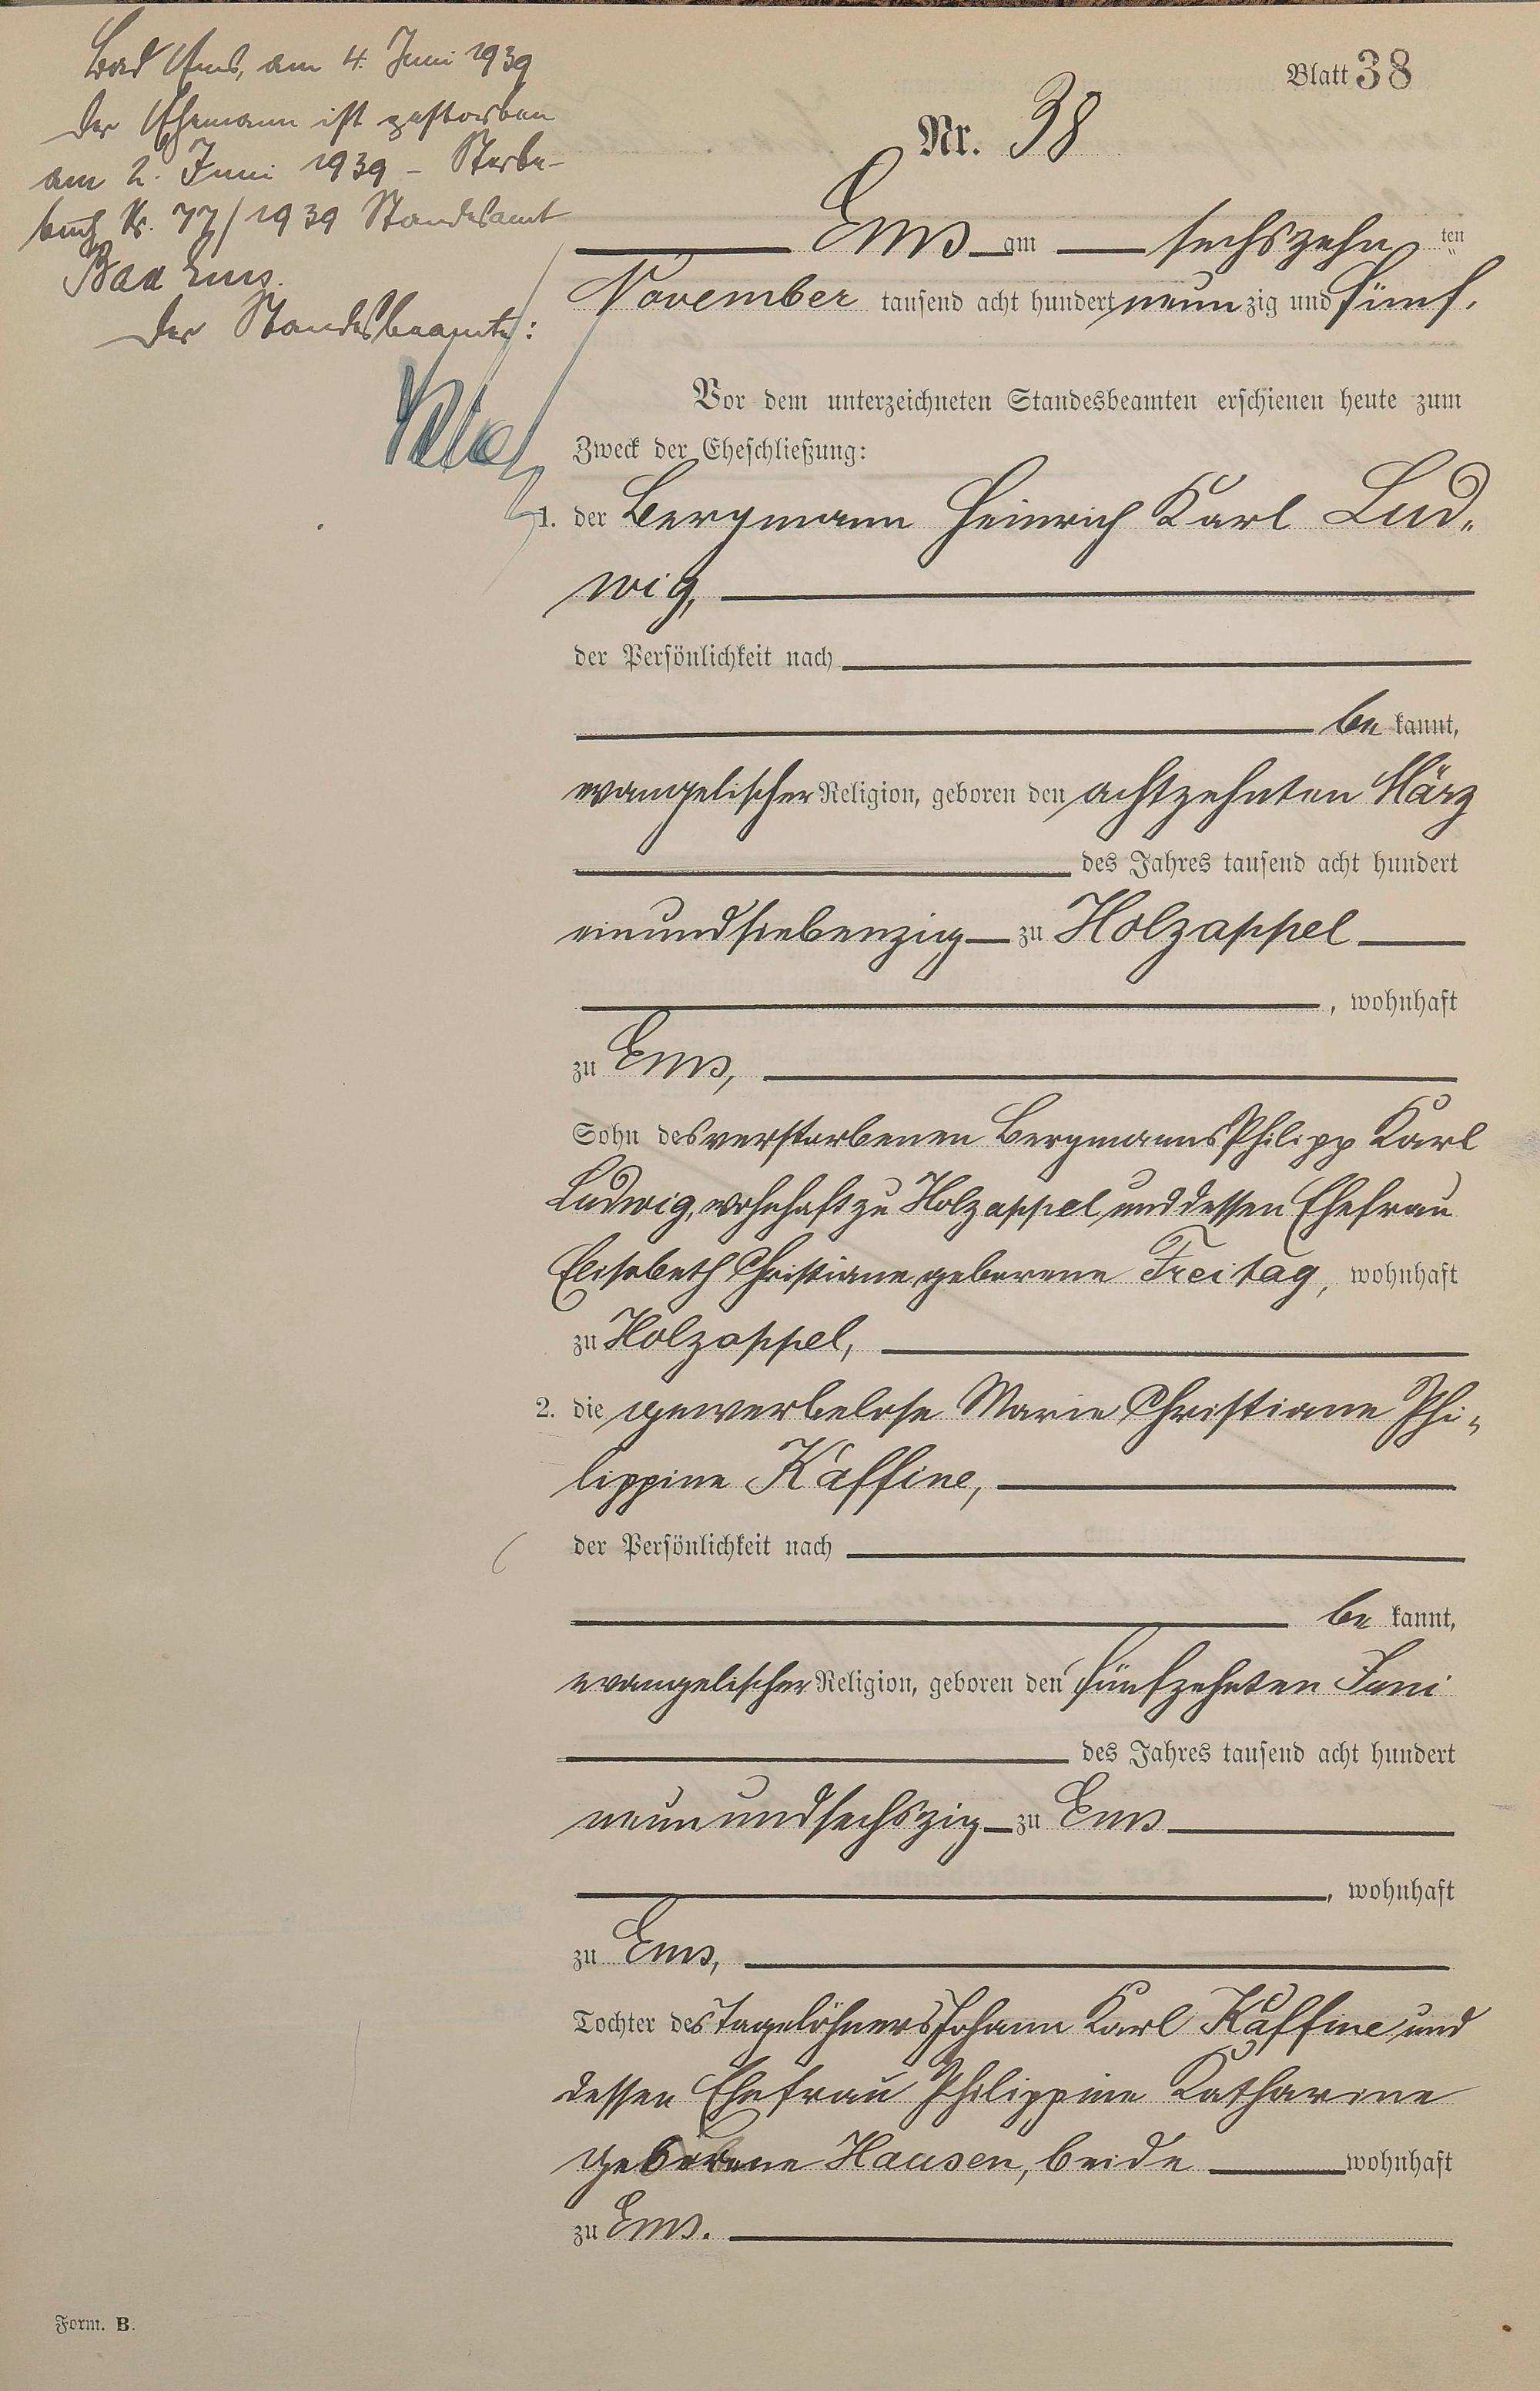 Bad Ems, am 4. Juni 1939
Der Ehemann ist gestorben
am 2. Juni 1939 - Sterbe-
buch Nr. 77/1939 Standesamt
Bad Ems.
Der Standesbeamte:
Blatt 38
Nr. 38
Ems am sechszehnten
November tausend acht hundert neunzig und fünf.
Vor dem unterzeichneten Standesbeamten erschienen heute zum
Zweck der Eheschließung:
1. der Bergmann Heinrich Karl Lud-
wig,
der Persönlichkeit nach
be kannt,
evangelischer Religion, geboren den achtzehnten März
des Jahres tausend acht hundert
einundsiebenzig zu Holzappel
, wohnhaft
zu Ems,
Sohn des verstorbenen Bergmanns Philipp Karl
Ludwig, wohnhaft zu Holzappel, und dessen Ehefrau
Elisabeth Christiane geborene Freitag, wohnhaft
zu Holzappel,
2. die gewerbelose Marie Christiane Phi-
lippine Kaffine,
der Persönlichkeit nach
be kannt,
evangelischer Religion, geboren den fünfzehnten Juni
des Jahres tausend acht hundert
neunundsechszig zu Ems
, wohnhaft
zu Ems,
Tochter des Tagelöhners Johann Karl Kaffine und
dessen Ehefrau Philippine Katharine
geborene Hausen, beide wohnhaft
zu Ems.
Form. B.